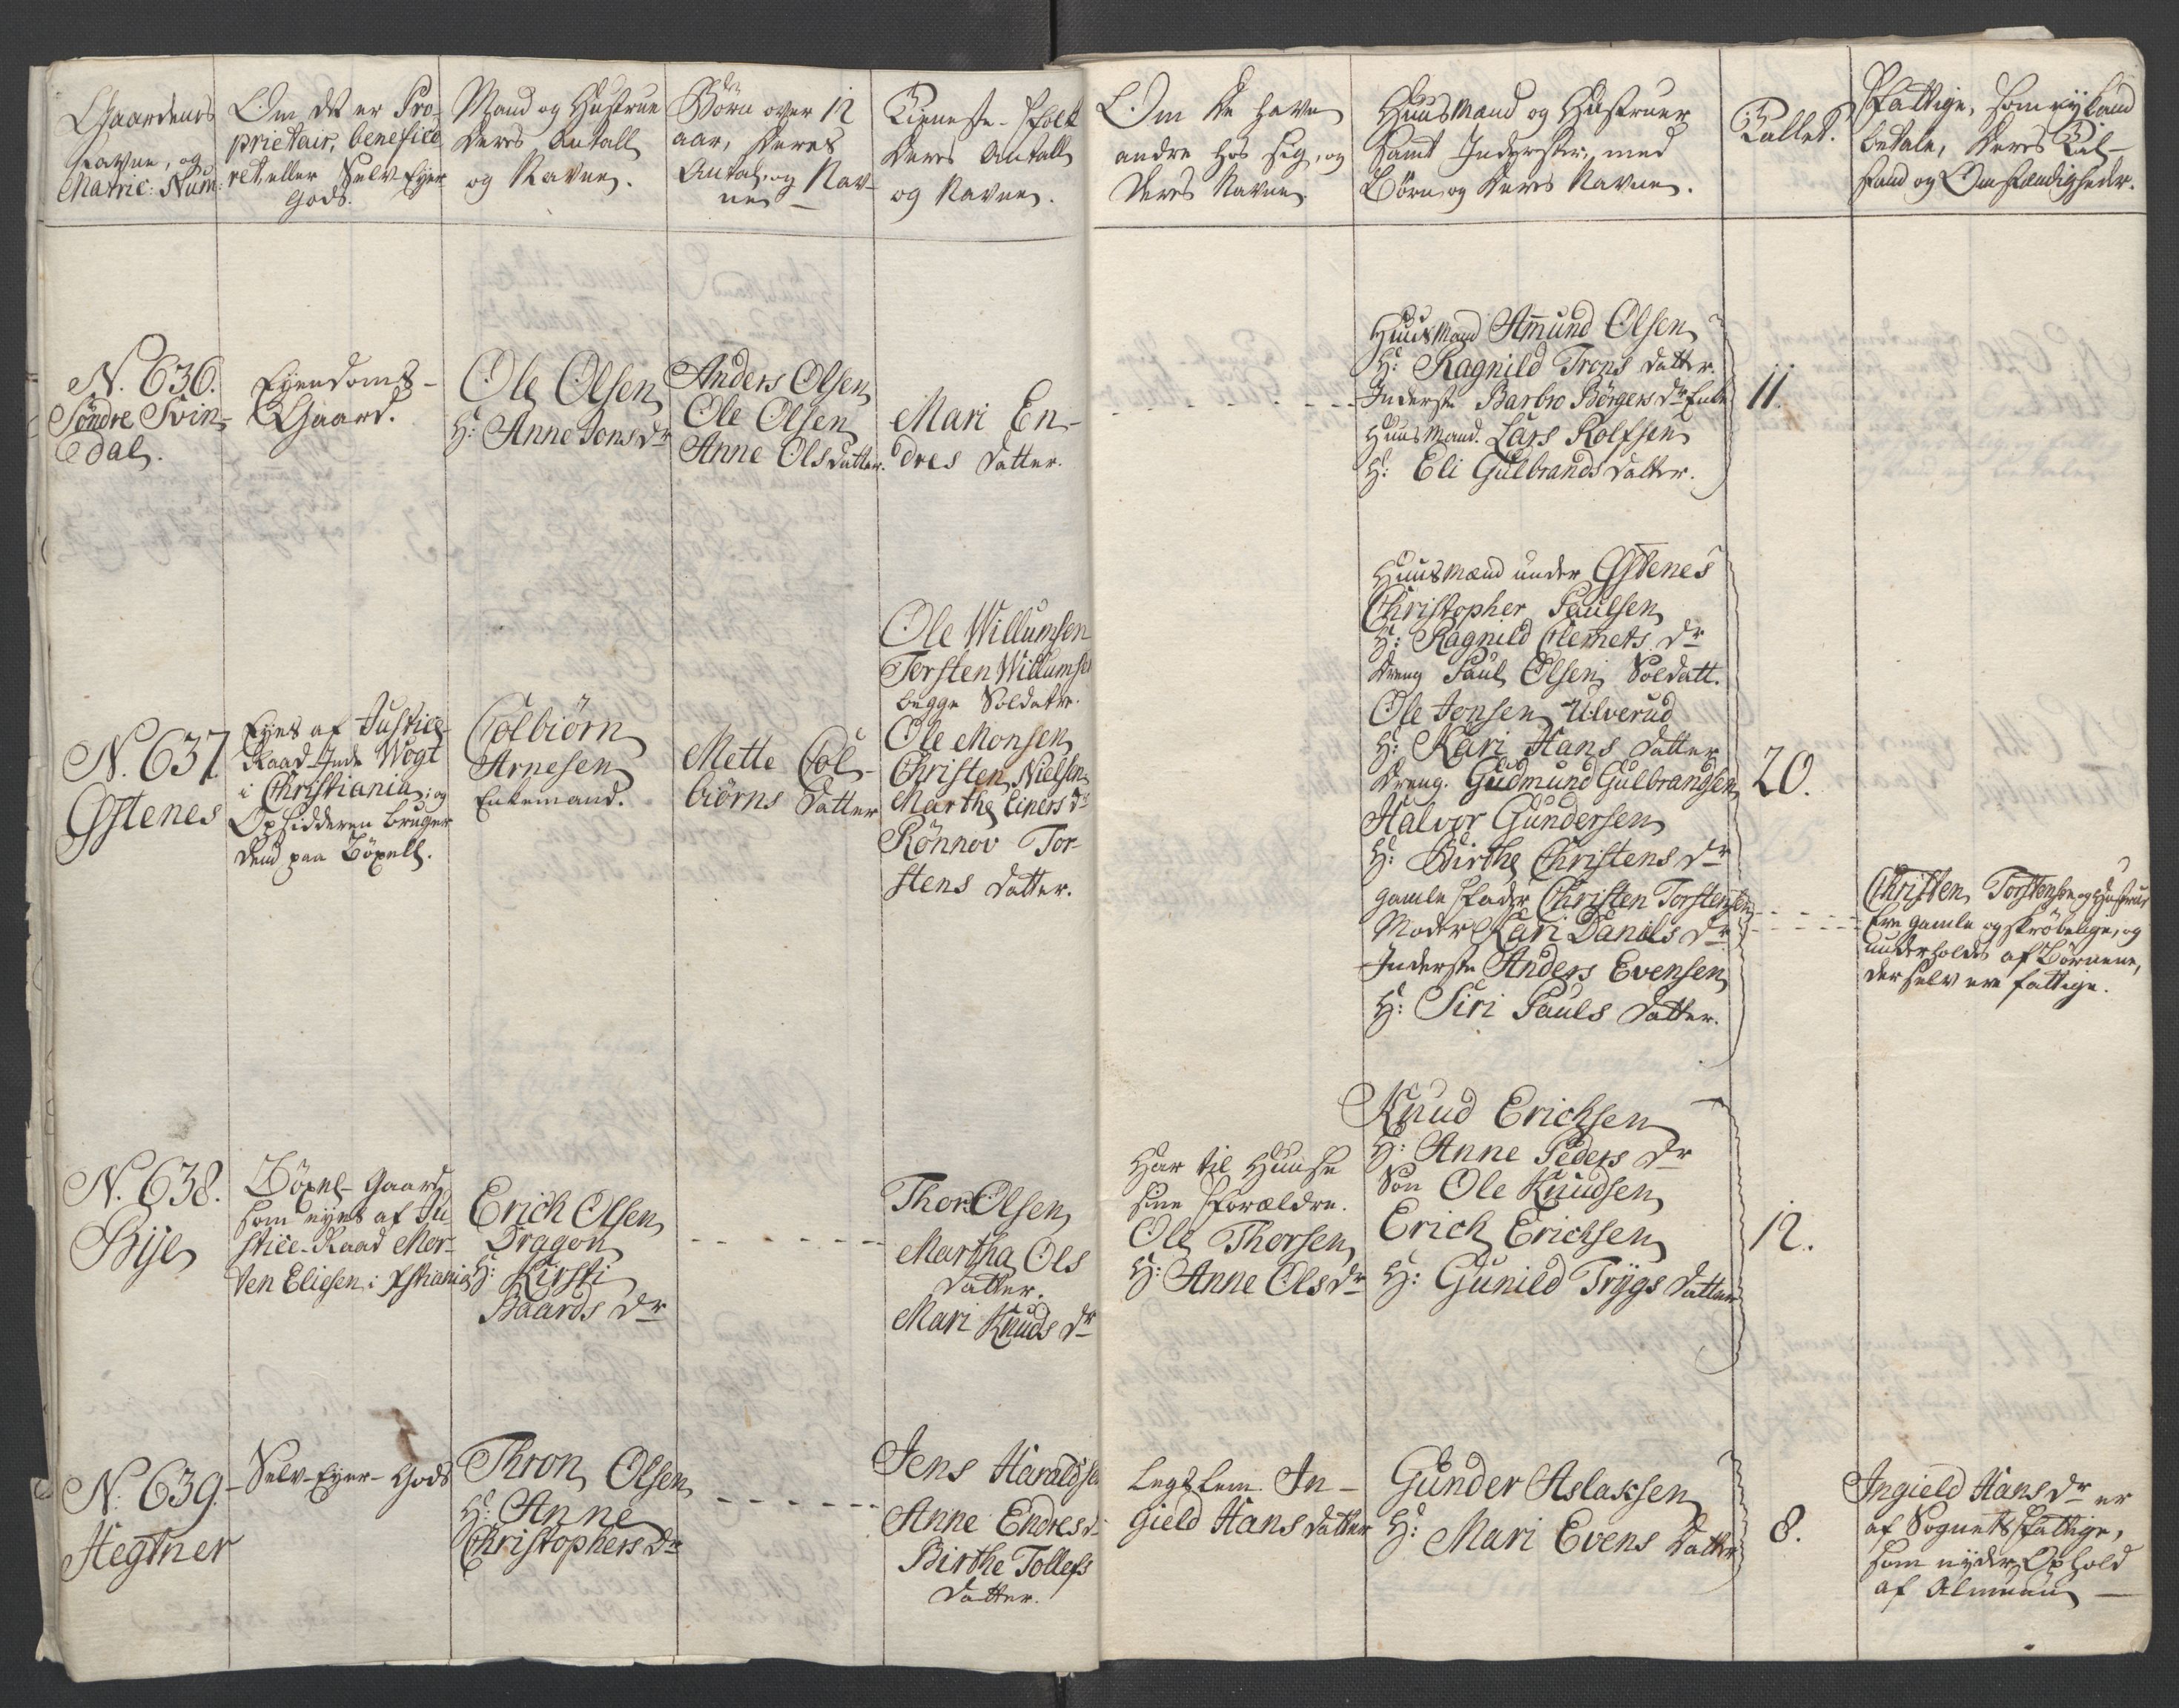 Gaardens
Navne, og
Matric: Num:
Om det er Pro-
prietair, benefice
ret, eller Selv Eyer
Gods.
Mand og Hustrue
Deres Antall
og Navne.
Børn over 12
aar, Deres
Antal, og Nav-
ne
Tieneste-Folk
Deres Antall
og Navne.
Om De have
andre hos sig, og
Deres Navne
Huusmænd og Hustruer
samt Inderster, med
Børn, og Deres Navne.
Tallet.
Fattige, som ey kand
betale, Deres Til-
stand og Omstændigheder.
N. 636.
Söndre Svin-
dal.
Eyendoms-
Gaard.
Ole Olsen
H: Anne Jons dr
Anders Olsen
Ole Olsen
Anne Olsdatter.
Mari En-
dres datter.
Huusmand Amund Olsen
H: Ragnild Trons datter.
Inderste Barbro Börgers dr Enke
Huusmand. Lars Rolfsen
H: Eli Gulbrands datter.
11.
N. 637
Gstenes
Eyes af Justice
Raad Jude Wogt
i Christiania, og
Opsidderen bruger
dend paa Böxell.
Colbiörn
Arnesen
Enkemand.
Mette Col-
biörns datter
Ole Willumsen
Torsten Willumsen
begge Soldater.
Ole Monsen
Christen Nielsen
Marthe Einers dr
Rönnov Tor-
stens datter.
Huusmænd under Gstenes
Christopher Paulsen
H: Ragnild Clemets dr
dreng Paul Olsen Soldatt.
Ole Jonsen Ulverud
H: Kari Hans datter
dreng. Gudmund Gulbrandsen
Halvor Gundersen
H: Birthe Christens dr
gamle Fader Christen Torstensen
Moder Kari Daniels dr
Inderste Anders Evensen
H: Siri Pauls datter.
20.
Christen Torstensen og Hustrue
Ere gamle og skröbelige, og
underholdes af Börnene,
der selv ere fattige.
N. 638.
Bije
Böxel-Gaard
som eyes af Ju-
stice-Raad Mor-
ten Eliesen i Xstiania
Erich Olsen
Dragon
H: Kirsti
Baards dr
Thor Olsen
Martha Ols
datter.
Mari Knuds dr
Har til Huuse
sine Forældre.
Ole Thorsen
H: Anne Ols dr
Knud Erichsen
H: Anne Peders dr
Sön Ole Knudsen
Erich Erichsen
H: Gunild Trygs datter
12.
N. 639.
Hegtner
Selv-Eyer-Gods
Thron Olsen
H: Anne
Christophers dr
Jens Haraldsen
Anne Endres dr
Birthe Tollefs
datter.
Legslem. In-
gield Hans datter
Gunder Aslaksen
H: Mari Evens datter
8.
Ingield Hans dr er
af Sognets Fattige,
som nyder Ophold
af Almuen